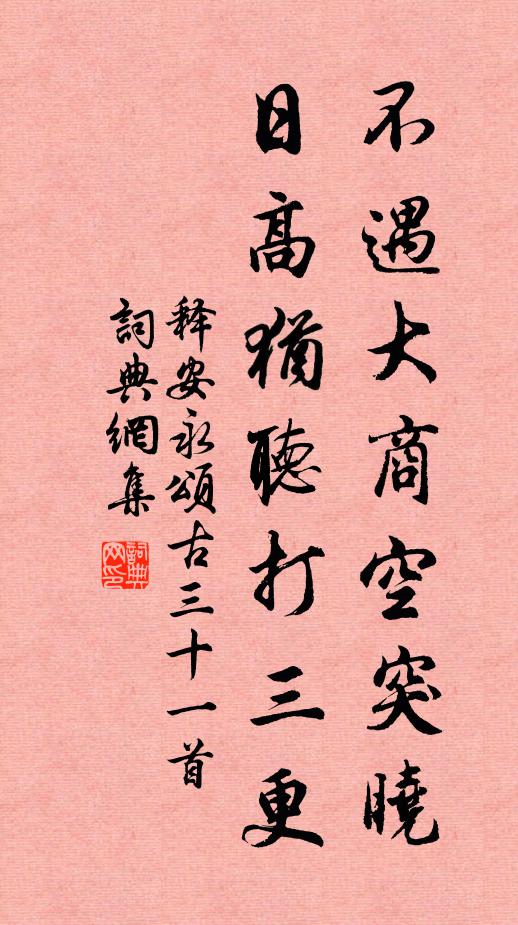 不遇大商空突曉
日高猶聽打三更
释安永頌古三十一首
詞典網集
詞典网印